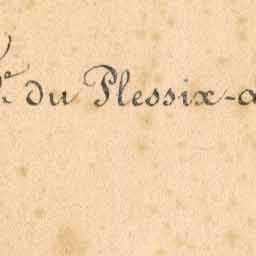 du Plessix-